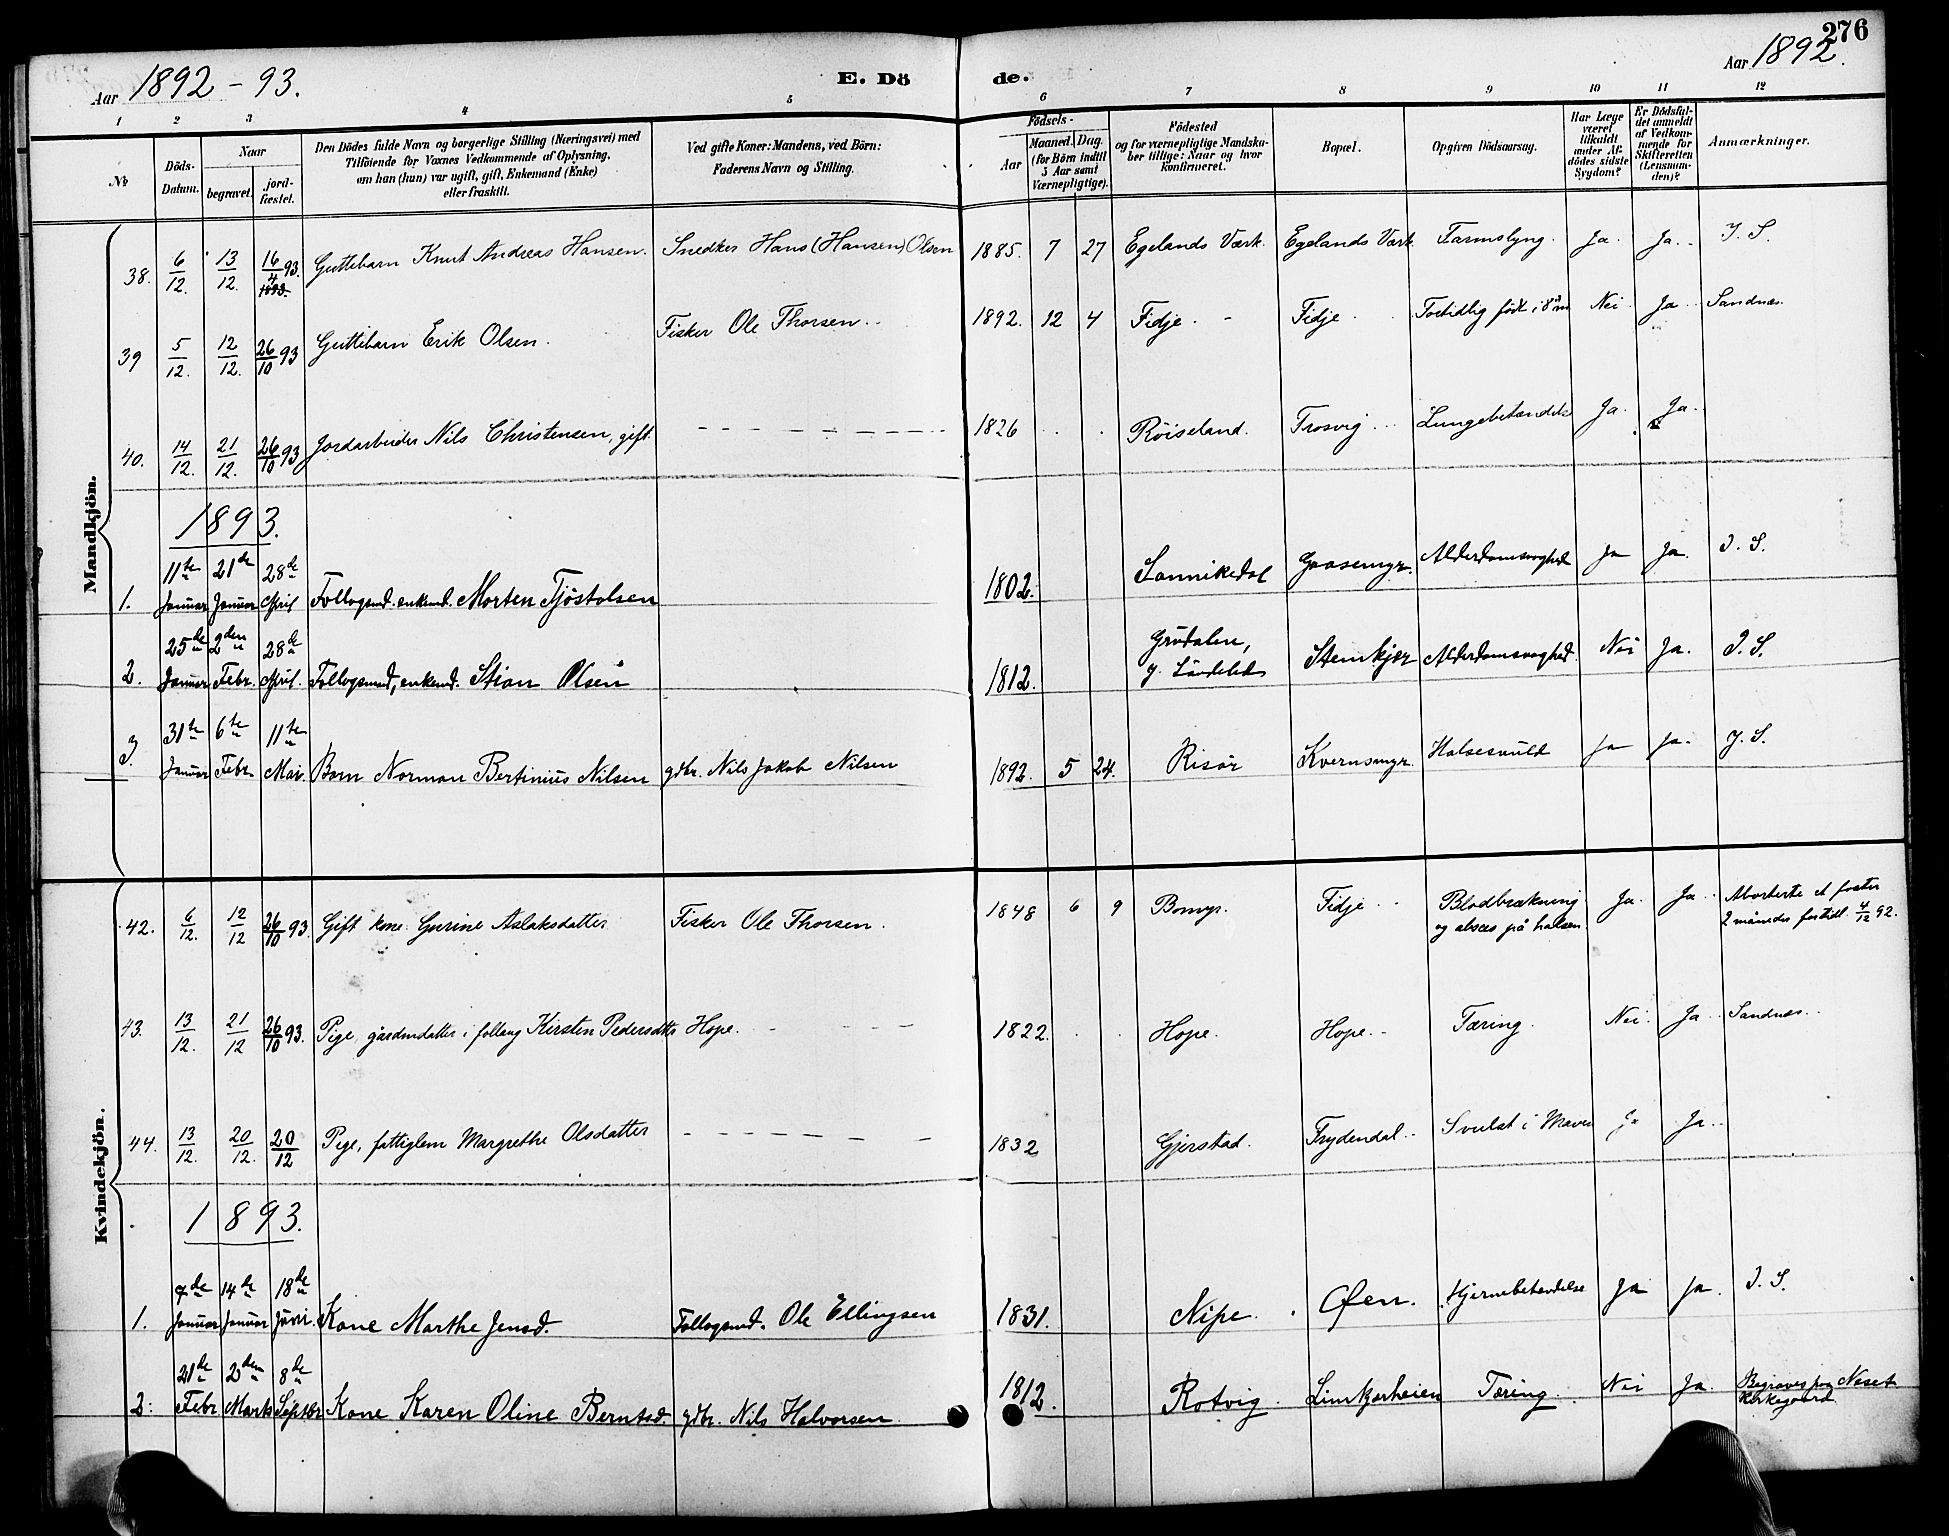 276
Aar 1892-93.
E. Dö
de.
Aar 1892.
1 2 3 4 5 6 7 8 9 10 11 12
№
Döds-Datum.
Naar
begravet.
jord-fæstet.
Den Dödes fulde Navn og borgerlige Stilling (Næringsvei) med
Tilföiende for Voxnes Vedkommende af Oplysning,
om han (hun) var ugift, gift, Enkemand (Enke)
eller fraskilt.
Ved gifte Koner: Mandens, ved Börn:
Faderens Navn og Stilling.
Födsels-
Aar
Maaned. Dag.
(for Börn indtil
5 Aar samt
Værnepligtige).
Födested
og for værnepligtige Mandska-
ber tillige: Naar og hvor
konfirmeret.
Bopæl.
Opgiven Dödsaarsag.
Har Læge
været
tilkaldt
under Af-
dödes sidste
Sygdom?
Er Dödsfal-
det anmeldt
af Vedkom-
mende for
Skifteretten
(Lensman-
den)?
Anmærkninger.
Mandkjön.
38. 6/12. 13/12. 16/4 93. 1893. Guttebarn Knut Andreas Hansen. Snedker Hans (Hansen) Olsen 1885. 7 27 Egelands Værk. Egelands Værk Tarmslyng. Ja. Ja. J. S.
39 5/12. 12/12. 26/10 93 Guttebarn Erik Olsen. Fisker Ole Thorsen. 1892. 12 4 Fidje. Fidje Fortidlig født i 8 m Nei. Ja Sandnæs.
40. 14/12. 21/12. 26/10 93 Jordarbeider Nils Christensen, gift. 1826 Røiseland. Trosvig Lungebetændelse Ja. Ja.
1893.
1. 11te Januar 21de Januar 28de April Follogsmd. enkemd. Morten Tjöstolsen 1802. Sannikedal Gaasemyr. Alderdomssvaghed Ja Ja. I. S.
2. 25de Januar 2den Febr. 28de April. Follogsmd, enkemd. Stian Olsen 1812. Grudalen, Stemkjær Alderdomssvaghed. Nei Ja. I. S.
3 31te Januar 6te Febr. 11te Mai. Barn Norman Bertinius Nilsen gdbr. Nils Jakob Nilsen 1892. 5 24. Risör Kvernsmyr. Halsesvuld Ja Ja. J. S.
Kvindekjön.
42. 6/12. 12/12 26/10 93. Gift kone. Gurine Aslaksdatter Fisker Ole Thorsen. 1848 6 9 Bomyr. Fidje Blodbrækning Ja. Ja Aborterte et foster
og absces på halsen. 2 måneder fortidl. 4/12 92.
43. 13/12. 21/12 26/10 93. Pige, gårdmdatter i follaug Kirsten Pedersdatter Hope. 1822. Hope. Hope. Tæring. Nei. Ja Sandnæs.
44. 13/12. 20/12. 20/12 Pige, fattiglem Margrethe Olsdatter 1832 Gjerstad. Frydendal. Svulst i Maven Ja Ja.
1893.
1. 7de Januar 14de Januar 18de Juni. Kone Marthe Jensd. Follogsmd. Ole Ellingsen 1831. Nipe. Øen. Hjernebetændelse Ja Ja. I. S.
2. 21de Febr 2den Marts 8de Septbr Kone Karen Oline Berntsd. gdbr. Nils Halvorsen 1812. Rotvig. Limkjærheien Tæring. Nei Ja. Begraves paa Næset
Kirkegaard